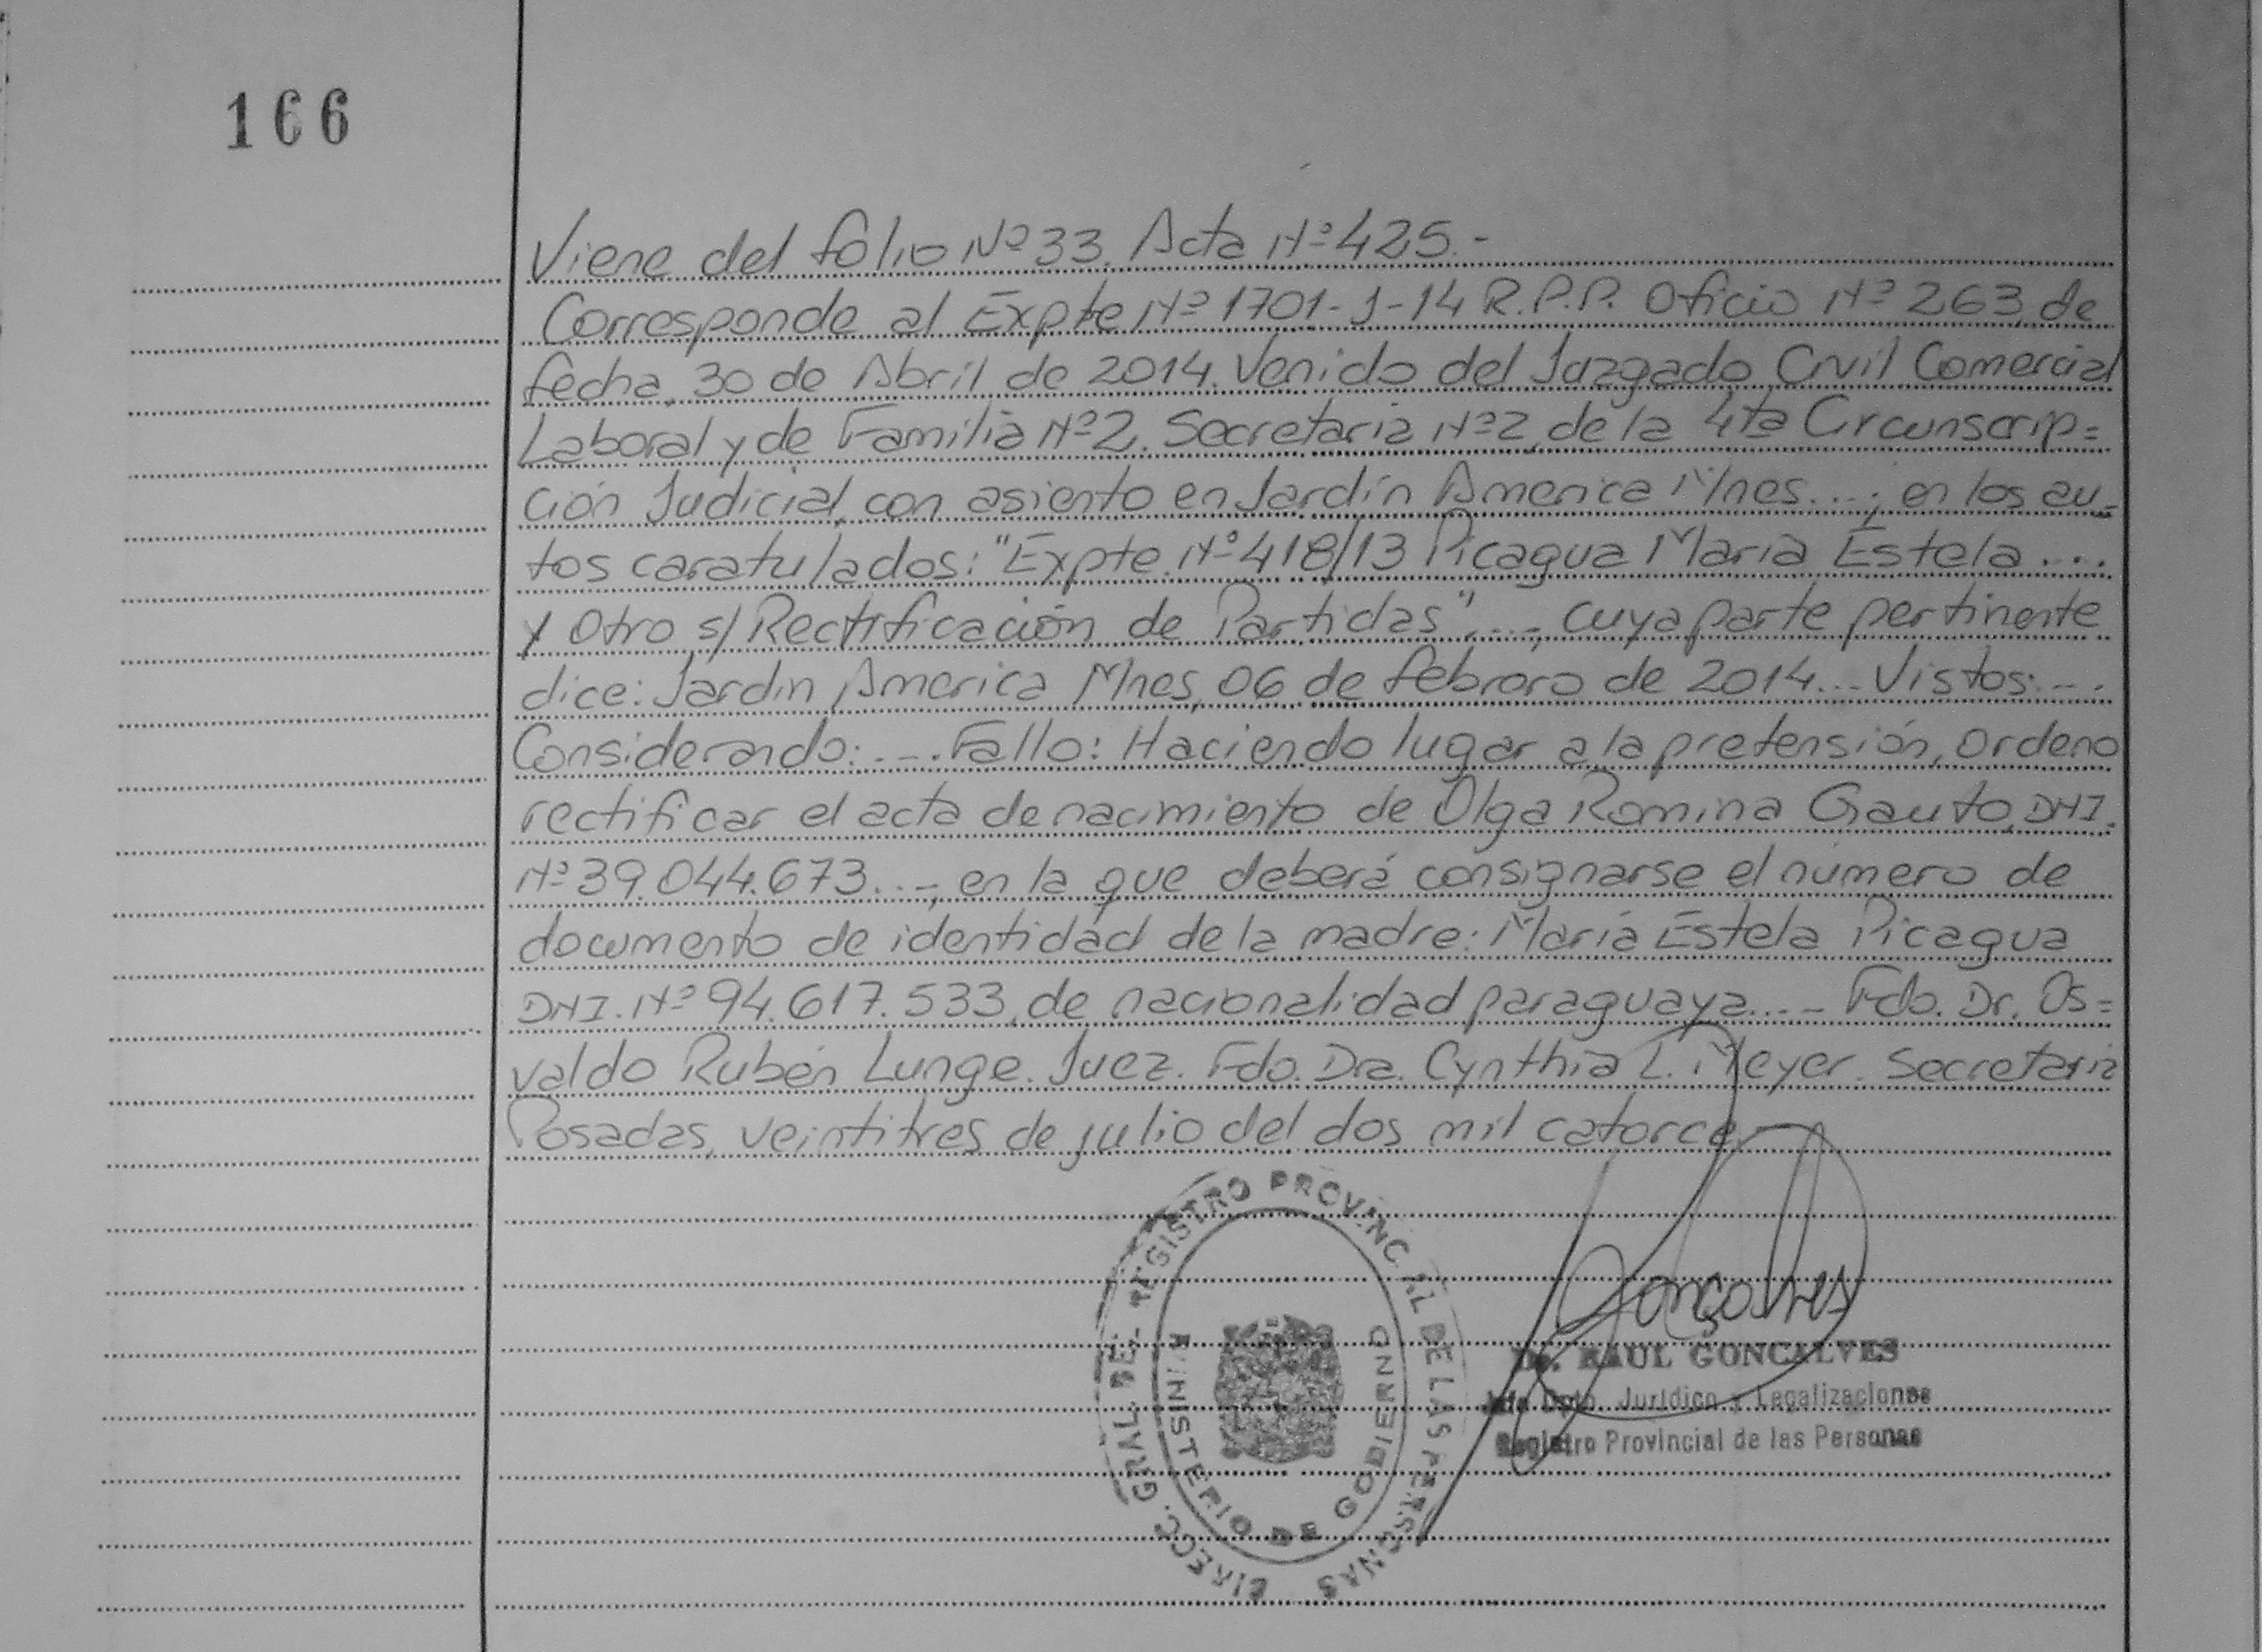 166
Viene del folio Nº 33. Acta Nº 425.-
Corresponde al Expte Nº 1701-J-14 R.P.P. Oficio Nº 263, de
fecha, 30 de Abril de 2014. Venido del Juzgado Civil Comercial
Laboral y de Familia Nº 2. Secretaria Nº 2, de la 4ta Circunscrip=
ción Judicial, con asiento en Jardín America Mnes...., en los au-
tos caratulados: "Expte. Nº 418/13 Picagua María Estela ...
y Otro s/ Rectificación de Partidas", ..., cuya parte pertinente
dice: Jardín America Mnes, 06 de febrero de 2014... Vistos:...
Considerando: .... Fallo: Haciendo lugar a la pretensión, ordeno
rectificar el acta de nacimiento de Olga Romina Gauto, DNI.
Nº 39.044.673...., en la que deberá consignarse el número de
documento de identidad de la madre: María Estela Picagua
DNI. Nº 94.617.533, de nacionalidad paraguaya.... Fdo. Dr. Os=
valdo Rubén Lunge. Juez. Fdo. Dra. Cynthia L. Meyer. Secretaria
Posadas, veintitres de julio del dos mil catorce
DIRECC. GRAL. DEL REGISTRO PROVINCIAL DE LAS PERSONAS
MINISTERIO DE GOBIERNO
Goncalves
Dr. RAUL GONCALVES
Jefe Dpto. Jurídico y Legalizaciones
Registro Provincial de las Personas